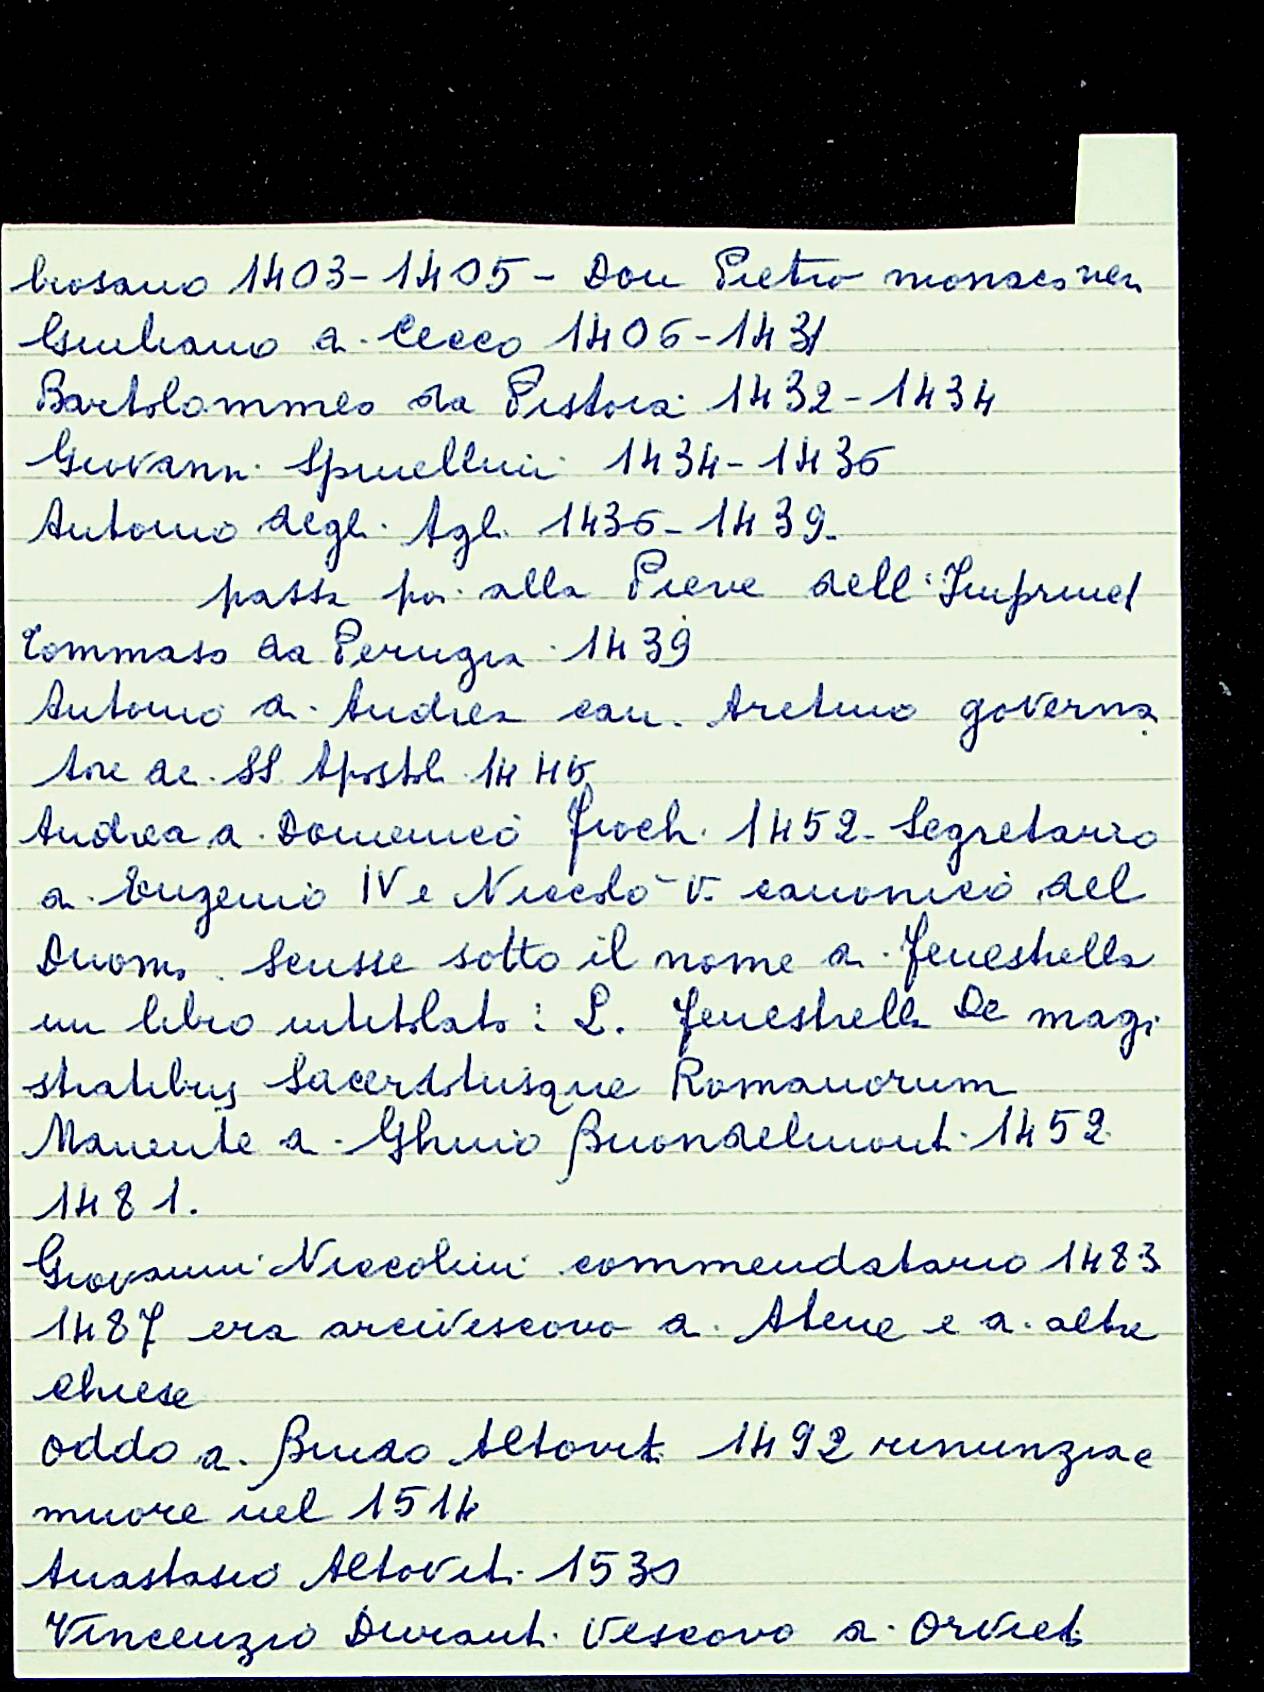 brosano 1403-1405 - Don Pietro monaco ven
Giuliano di Cecco 1406-1431
Bartolommeo da Pistoia 1432-1434
Giovanni Spinellini 1434-1436
Antonio degli Agli 1436-1439
passa poi alla Pieve dell'Imprunet
Tommaso da Perugia 1439
Antonio di Andrea can. Aretino governa
tore dei SS Apostoli 1445
Andrea di Domenico Fiochi 1452 - Segretario
di Eugenio IV e Niccolò V. canonico del
Duomo. Scrisse sotto il nome di Fenestrella
un libro intitolato: L. Fenestrella De magi
stratibus Sacerdotiisque Romanorum
Manente di Ghino Buondelmonti 1452
1481.
Giovanni Niccolini commendatario 1483
1487 era arcivescovo di Atene e di altre
chiese
Oddo di Bindo Altoviti 1492 rinunzia e
muore nel 1514
Anastasio Altoviti 1530
Vincenzio Duranti Vescovo di Orvieto